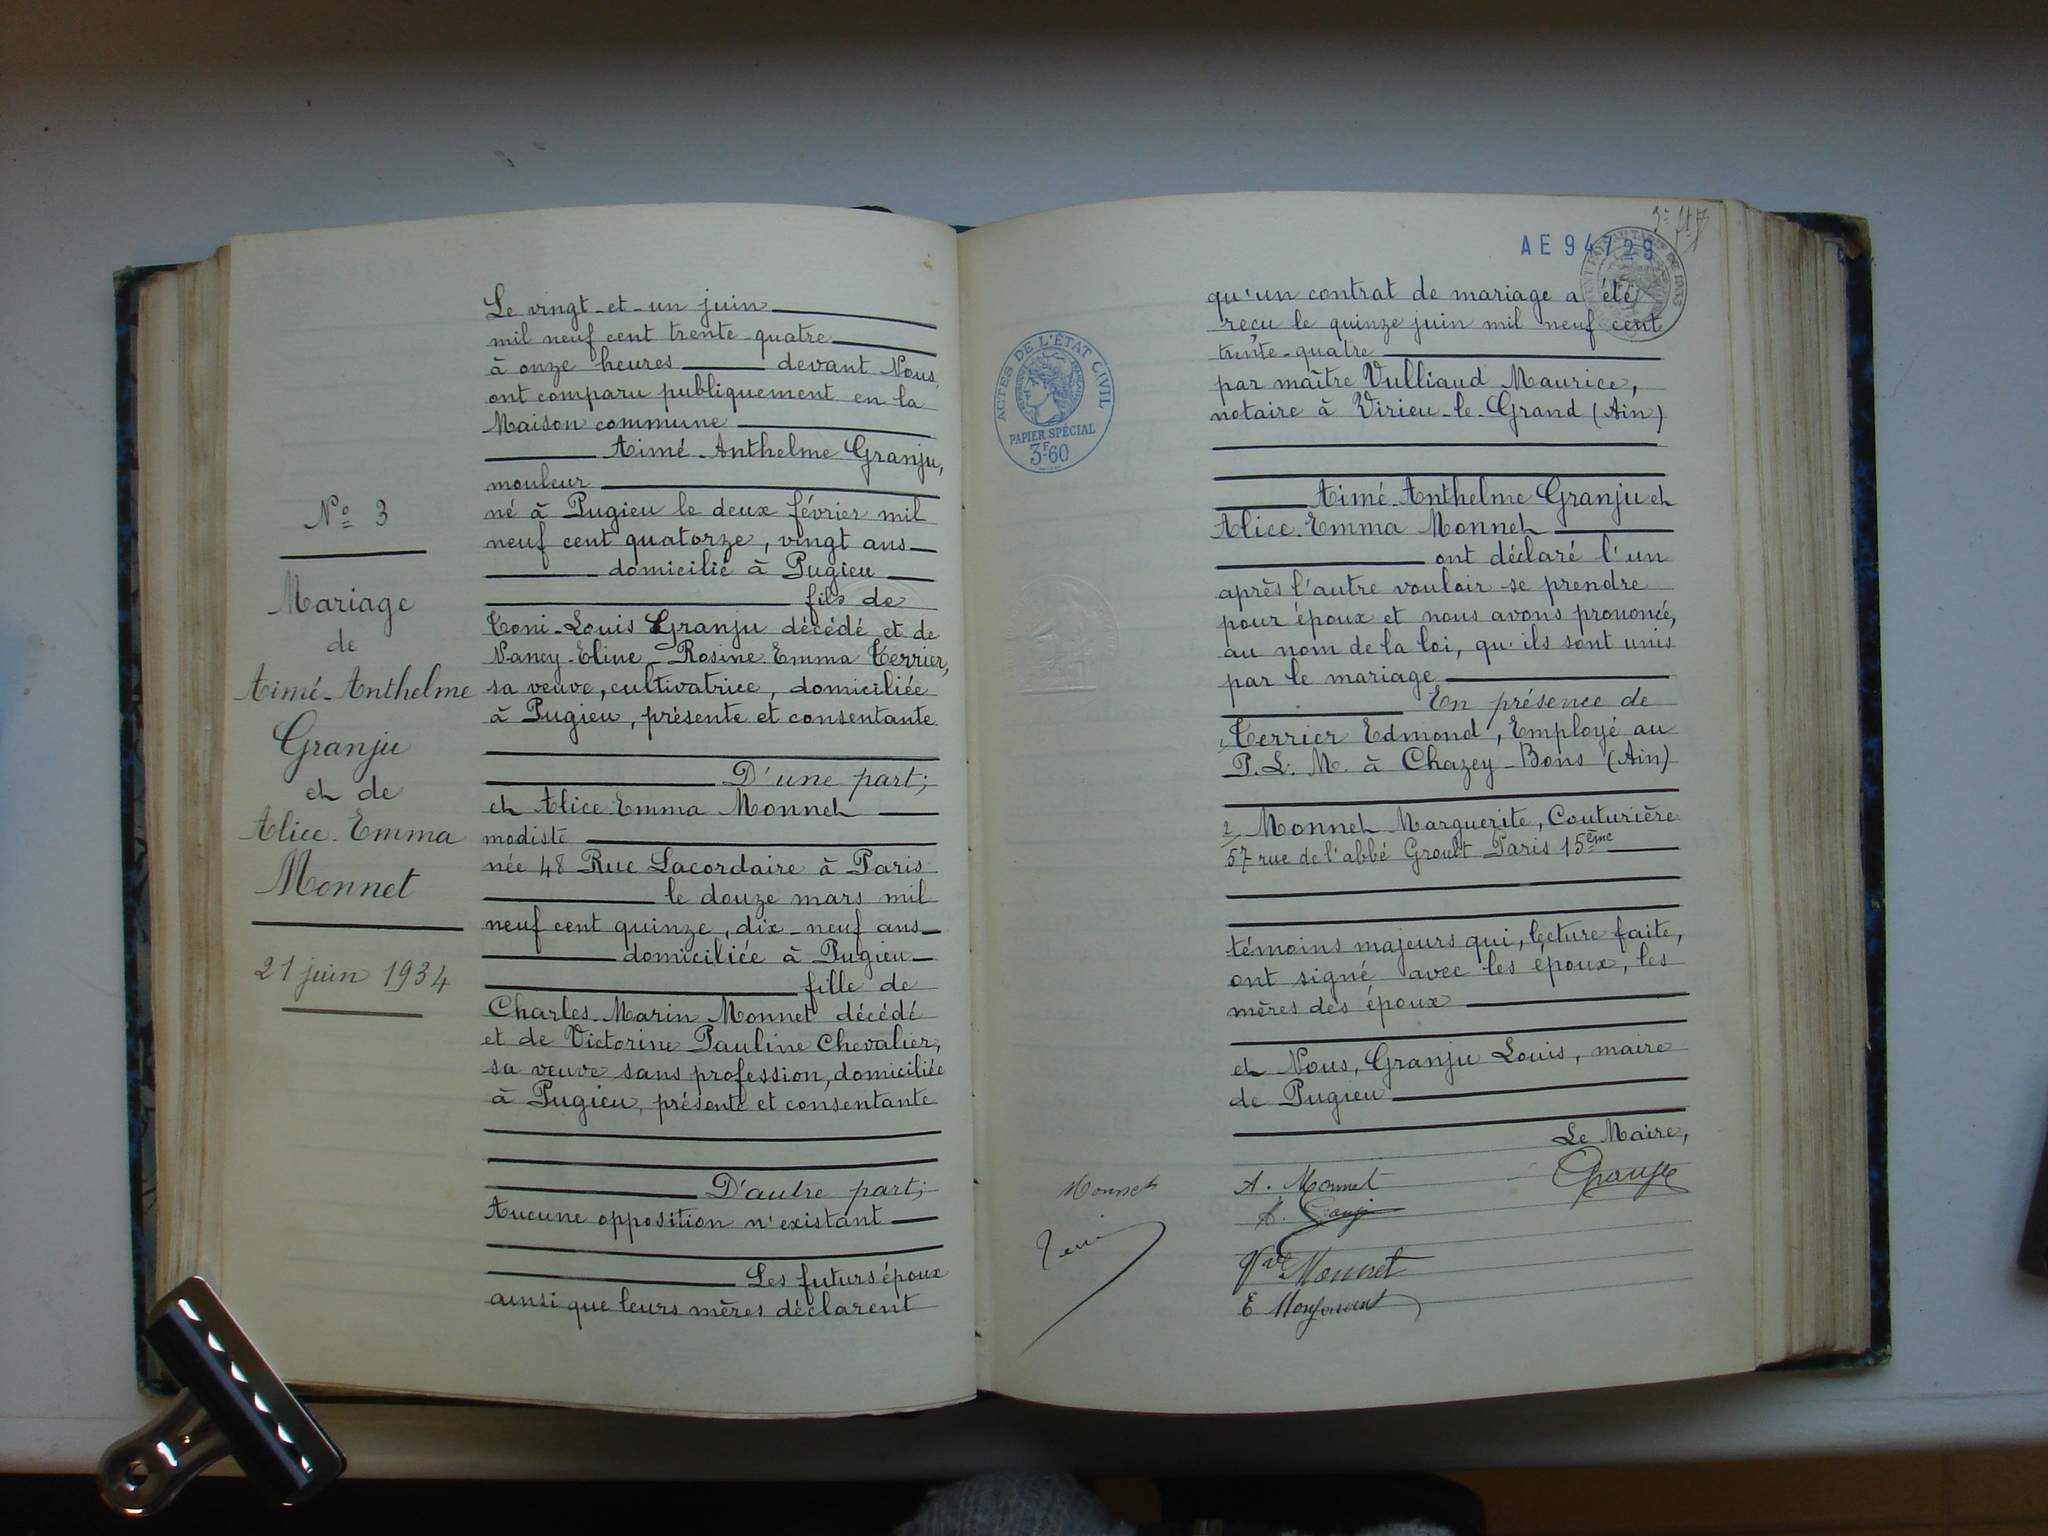 N° 3
Mariage
de
Aimé-Anthelme
Granju
et de
Alice-Emma
Monnet
21 juin 1934
Le vingt-et-un juin
mil neuf cent trente-quatre
à onze heures devant Nous
ont comparu publiquement en la
Maison commune
Aimé-Anthelme Granju,
mouleur
né à Pugieu le deux février mil
neuf cent quatorze, vingt ans
domicilié à Pugieu
fils de
Toni-Louis Granju décédé et de
Nancy-Eline-Rosine-Emma Terrier,
sa veuve, cultivatrice, domiciliée
à Pugieu, présente et consentante
D'une part;
et Alice-Emma Monnet
modiste
née 48 Rue Lacordaire à Paris
le douze mars mil
neuf cent quinze, dix-neuf ans
domiciliée à Pugieu
fille de
Charles-Marin Monnet décédé
et de Victorine Pauline Chevalier,
sa veuve sans profession, domiciliée
à Pugieu, présente et consentante
D'autre part;
Aucune opposition n'existant
Les futurs époux
ainsi que leurs mères déclarent
AE 94729
ACTES DE L'ÉTAT CIVIL
PAPIER SPÉCIAL
3F60
qu'un contrat de mariage a été
reçu le quinze juin mil neuf cent
trente-quatre
par maître Vulliaud Maurice,
notaire à Virieu-le-Grand (Ain)
Aimé-Anthelme Granju et
Alice-Emma Monnet
ont déclaré l'un
après l'autre vouloir se prendre
pour époux et nous avons prononcé,
au nom de la loi, qu'ils sont unis
par le mariage
En présence de
1, Terrier Edmond, Employé au
P.L.M. à Chazey-Bons (Ain)
2, Monnet Marguerite, Couturière
57 rue de l'abbé Groult Paris 15ème
témoins majeurs qui, lecture faite,
ont signé avec les époux, les
mères des époux
et Nous, Granju Louis, maire
de Pugieu
Le Maire,
Monnet
A. Monnet
Granju
Vve Monnet